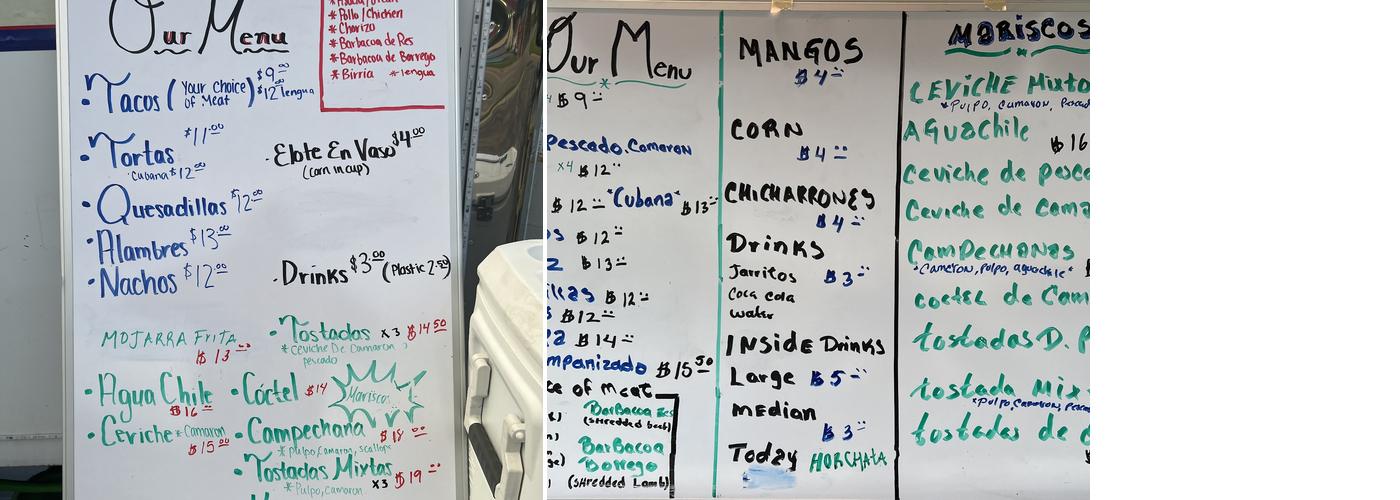 Our Menu
* Pollo/Chicken
* Chorizo
* Barbacoa de Res
* Barbacoa de Borrego
* Birria * lengua
• Tacos (Your Choice of Meat) $9.00
$12.00 lengua
• Tortas $11.00
*Cubana $12.00
• Elote En Vaso $4.00
(corn in cup)
• Quesadillas $12.00
• Alambres $13.00
• Nachos $12.00
• Drinks $3.00 (Plastic 2.50)
MOJARRA Frita
$13
• Tostadas x3 $14.50
* Ceviche De Camaron
pescado
• Agua Chile
$16
• Cóctel $14
Mariscos
• Ceviche * Camaron
$15.00
• Campechana $18
* Pulpo, Camaron, scallops
• Tostadas Mixtas x3 $19
* Pulpo, Camaron
Our Menu
$9
Pescado, Camaron
x4 $12
$12 *Cubana* $13
$12
$13
$12
$12
$14
$15.50
of meat
BarBacoa Res
(SHredded beef)
BarBacoa
Borrego
(SHredded Lamb)
MANGOS
$4
CORN
$4
CHICHARRONES
$4
Drinks
Jarritos $3
Coca cola
water
INSide Drinks
Large $5
median
$3
Today HORCHATA
MARISCOS
CEVICHE Mixto
*Pulpo, Camaron,
AGuachile
$16
Ceviche de
Ceviche de
CamPechanas
*Cameron, Pulpo, aguachile*
coctel de
tostadas D.
tostada
*Pulpo, Camaron,
tostadas de